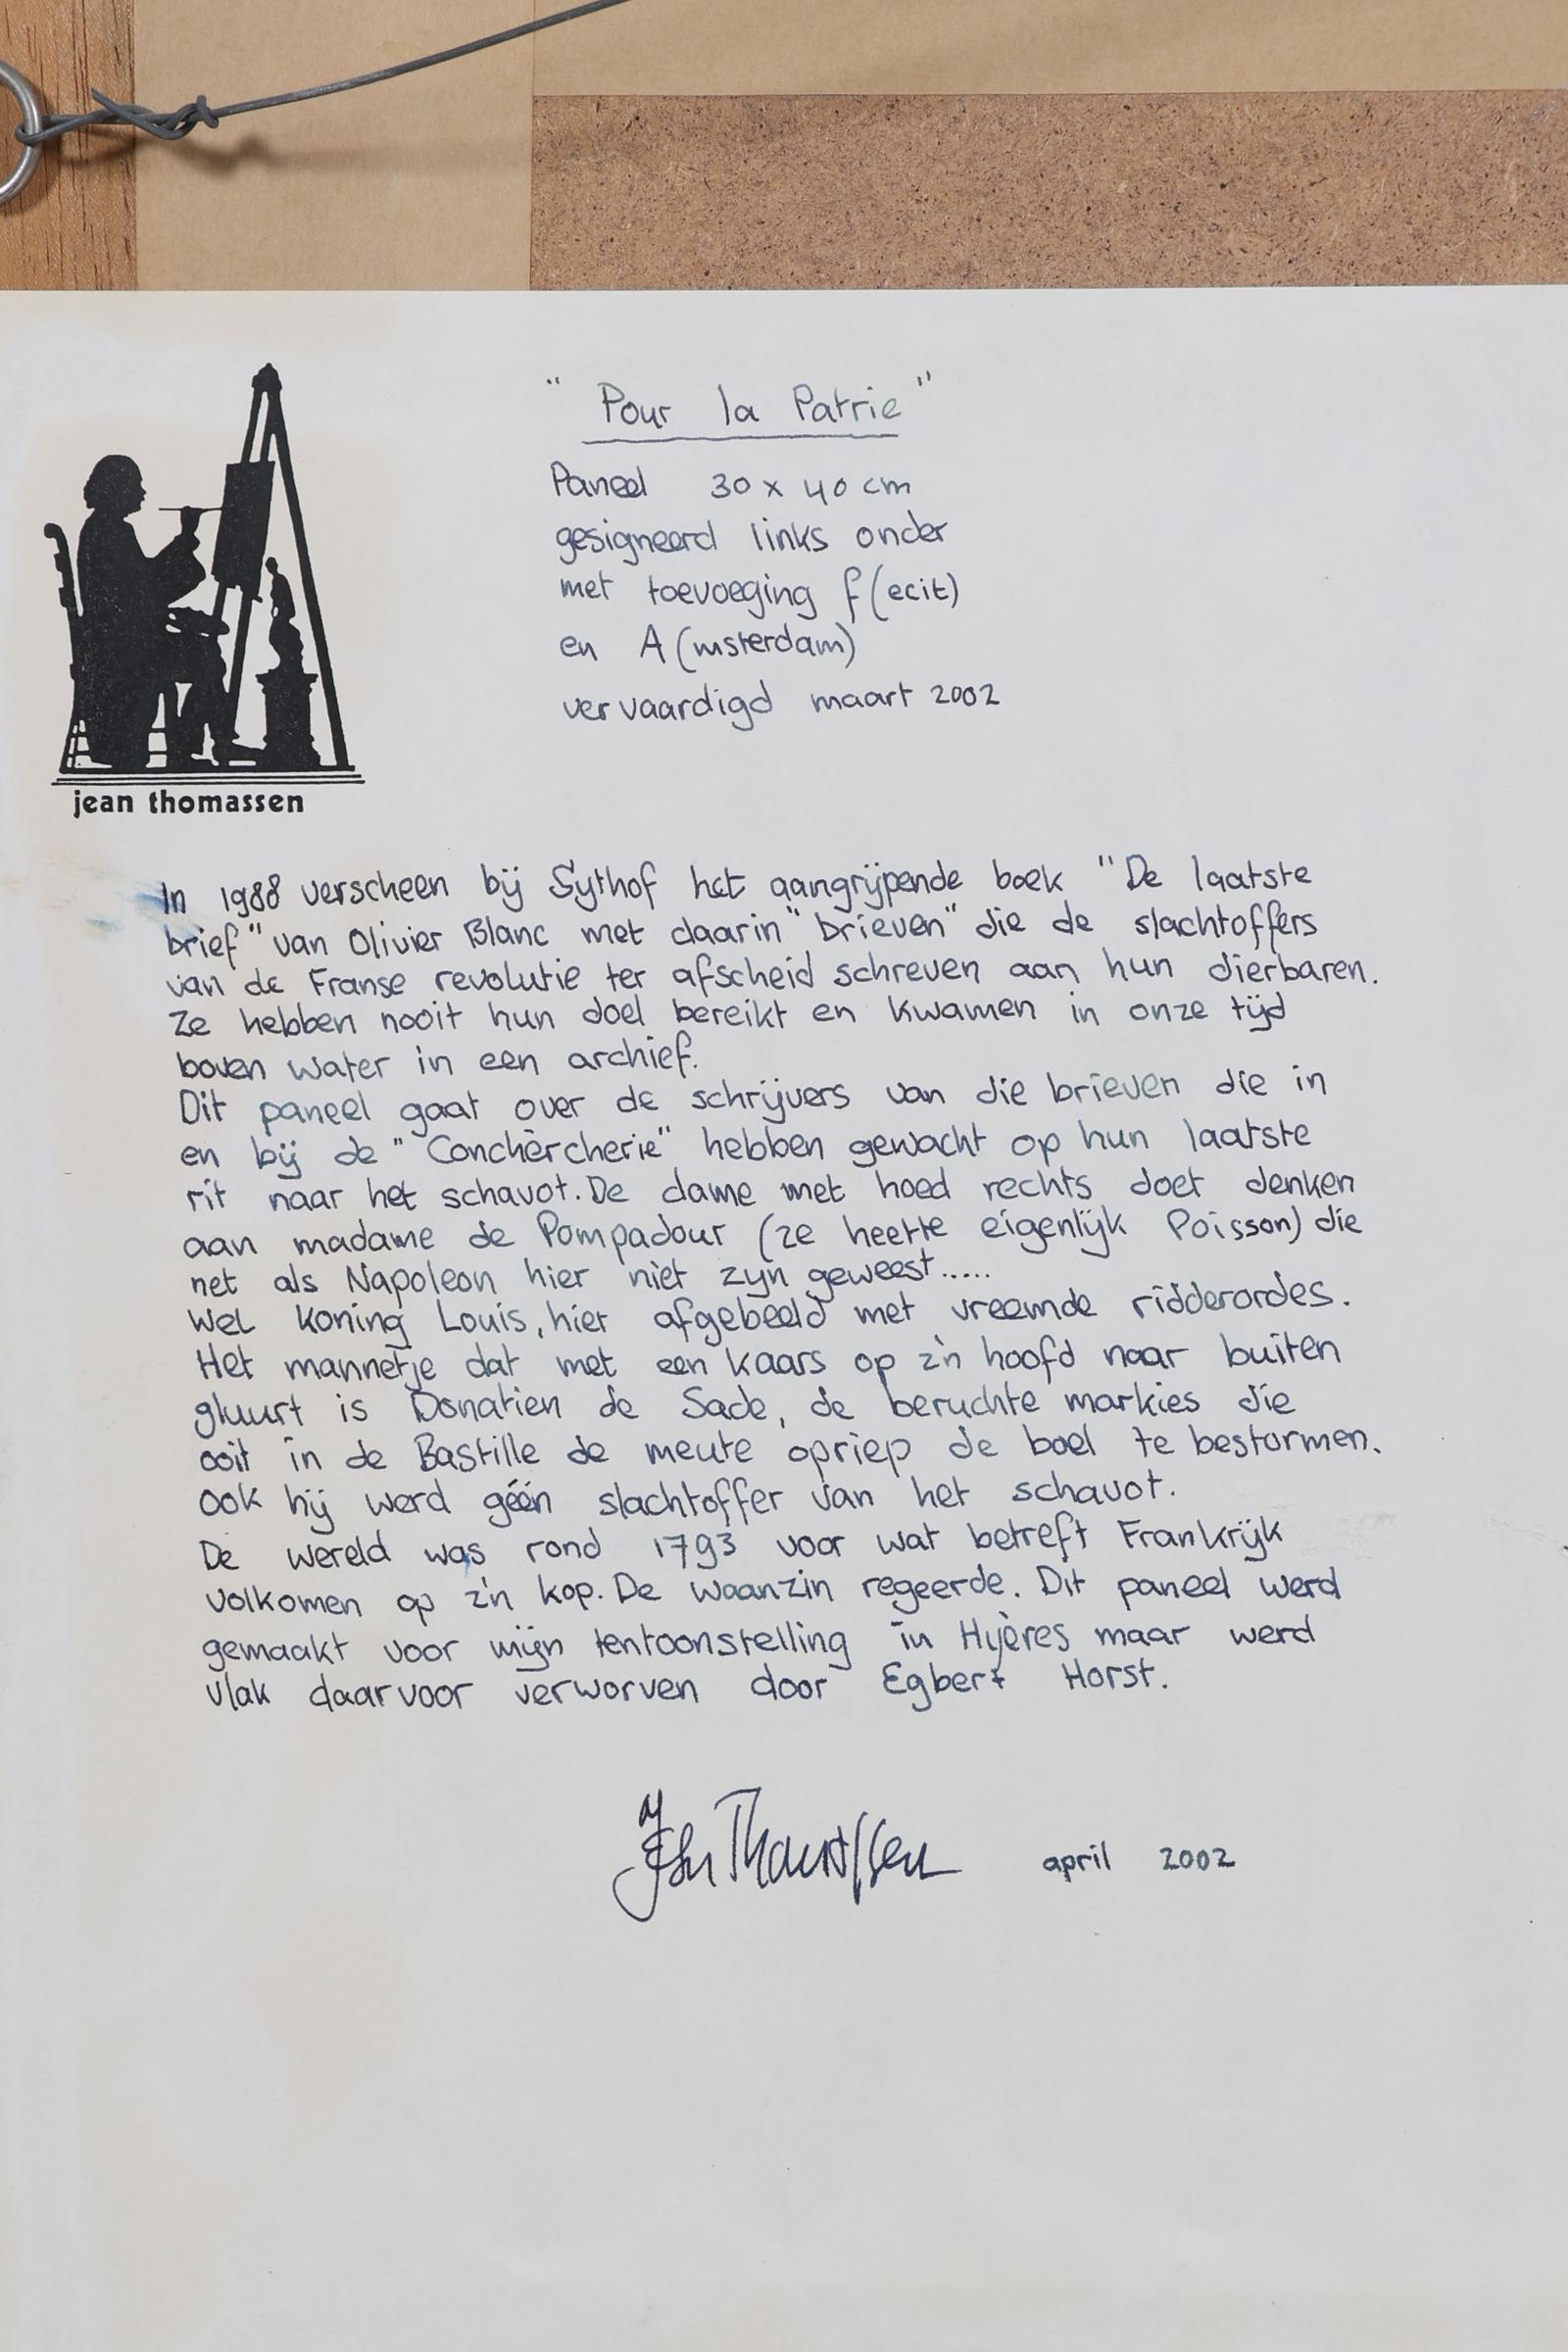 "Pour la Patrie"
Paneel 30 x 40 cm
gesigneerd links onder
met toevoeging f(ecit)
en A(msterdam)
vervaardigd maart 2002
jean thomassen
In 1988 verscheen bij Sythof het aangrijpende boek "De laatste
brief" van Olivier Blanc met daarin "brieven" die de slachtoffers
van de Franse revolutie ter afscheid schreven aan hun dierbaren.
Ze hebben nooit hun doel bereikt en kwamen in onze tijd
boven water in een archief.
Dit paneel gaat over de schrijvers van die brieven die in
en bij de "Conchèrcherie" hebben gewacht op hun laatste
rit naar het schavot. De dame met hoed rechts doet denken
aan madame de Pompadour (ze heette eigenlijk Poisson) die
net als Napoleon hier niet zijn geweest.....
Wel koning Louis, hier afgebeeld met vreemde ridderordes.
Het mannetje dat met een kaars op z'n hoofd naar buiten
gluurt is Donatien de Sade, de beruchte markies die
ooit in de Bastille de meute opriep de boel te bestormen.
Ook hij werd géén slachtoffer van het schavot.
De wereld was rond 1793 voor wat betreft Frankrijk
volkomen op z'n kop. De waanzin regeerde. Dit paneel werd
gemaakt voor mijn tentoonstelling in Hyères maar werd
vlak daarvoor verworven door Egbert Horst.
Thomassen april 2002